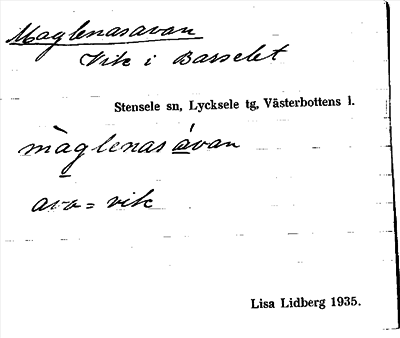 Maglenasavan
Vik i Barselet
Stensele sn, Lycksele tg, Västerbottens l.
màglenasávan
ava = vik
Lisa Lidberg 1935.